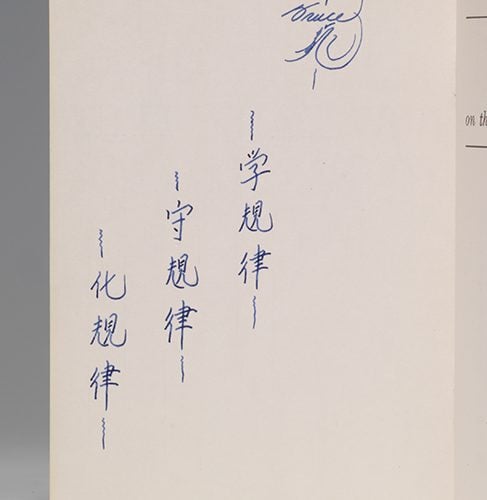 Bruce
学規律
守規律
化規律
on th